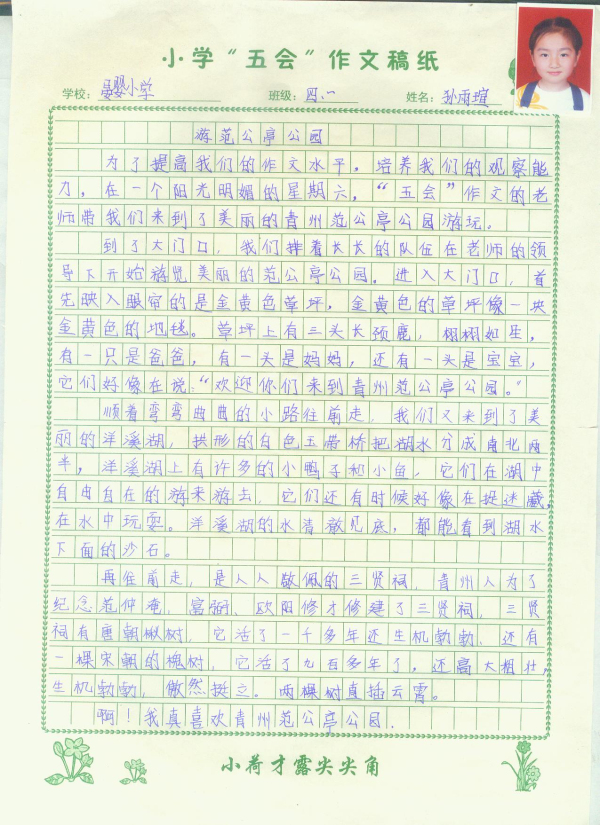 小学“五会”作文稿纸
学校：晏婴小学 班级：四、一 姓名：孙雨瑄
游范公亭公园
为了提高我们的作文水平，培养我们的观察能
力，在一个阳光明媚的星期六，“五会”作文的老
师带我们来到了美丽的青州范公亭公园游玩。
到了大门口，我们排着长长的队伍在老师的领
导下开始游览美丽的范公亭公园。进入大门口，首
先映入眼帘的是金黄色草坪，金黄色的草坪像一块
金黄色的地毯。草坪上有三头长颈鹿，栩栩如生，
有一只是爸爸，有一头是妈妈，还有一头是宝宝，
它们好像在说：“欢迎你们来到青州范公亭公园。”
顺着弯弯曲曲的小路往前走，我们又来到了美
丽的洋溪湖，拱形的白色玉带桥把湖水分成南北两
半，洋溪湖上有许多的小鸭子和小鱼，它们在湖中
自由自在的游来游去，它们还有时候好像在捉迷藏，
在水中玩耍。洋溪湖的水清澈见底，都能看到湖水
下面的沙石。
再往前走，是人人敬佩的三贤祠，青州人为了
纪念范仲淹、富弼、欧阳修才修建了三贤祠，三贤
祠有唐朝楸树，它活了一千多年还生机勃勃，还有
一棵宋朝的槐树，它活了九百多年了，还高大粗壮，
生机勃勃，傲然挺立。两棵树直插云霄。
啊！我真喜欢青州范公亭公园．
小荷才露尖尖角